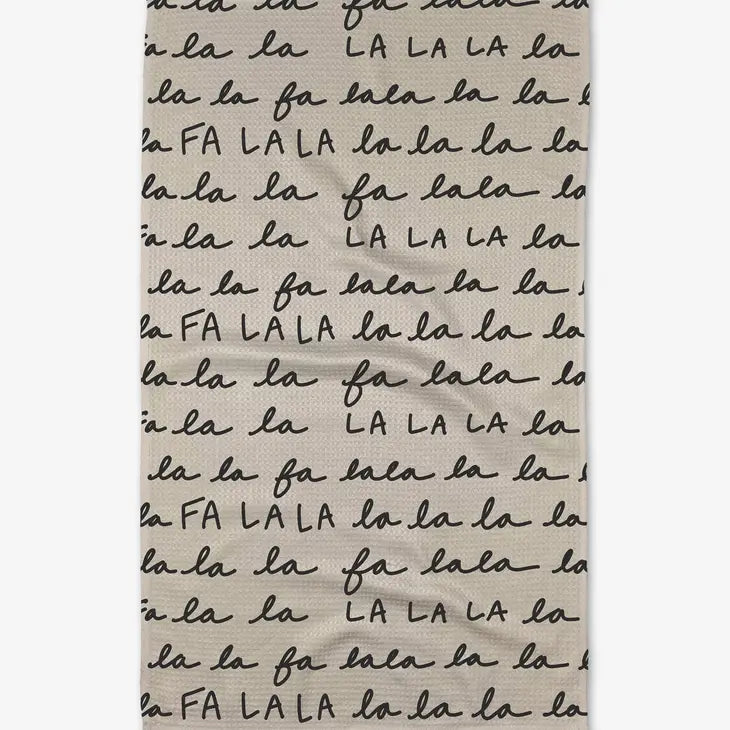 la la la fa lala la
fa la la LA LA LA la
la la fa lala la la l
la FA LA LA la la la la
la la la fa lala la
fa la la LA LA LA la
la la fa lala la la
la FA LA LA la la la la
la la la fa lala la
fa la la LA LA LA la
la la fa lala la la l
la FA LA LA la la la la
la la la fa lala la
fa la la LA LA LA la
la la fa lala la la l
la FA LA LA la la la la